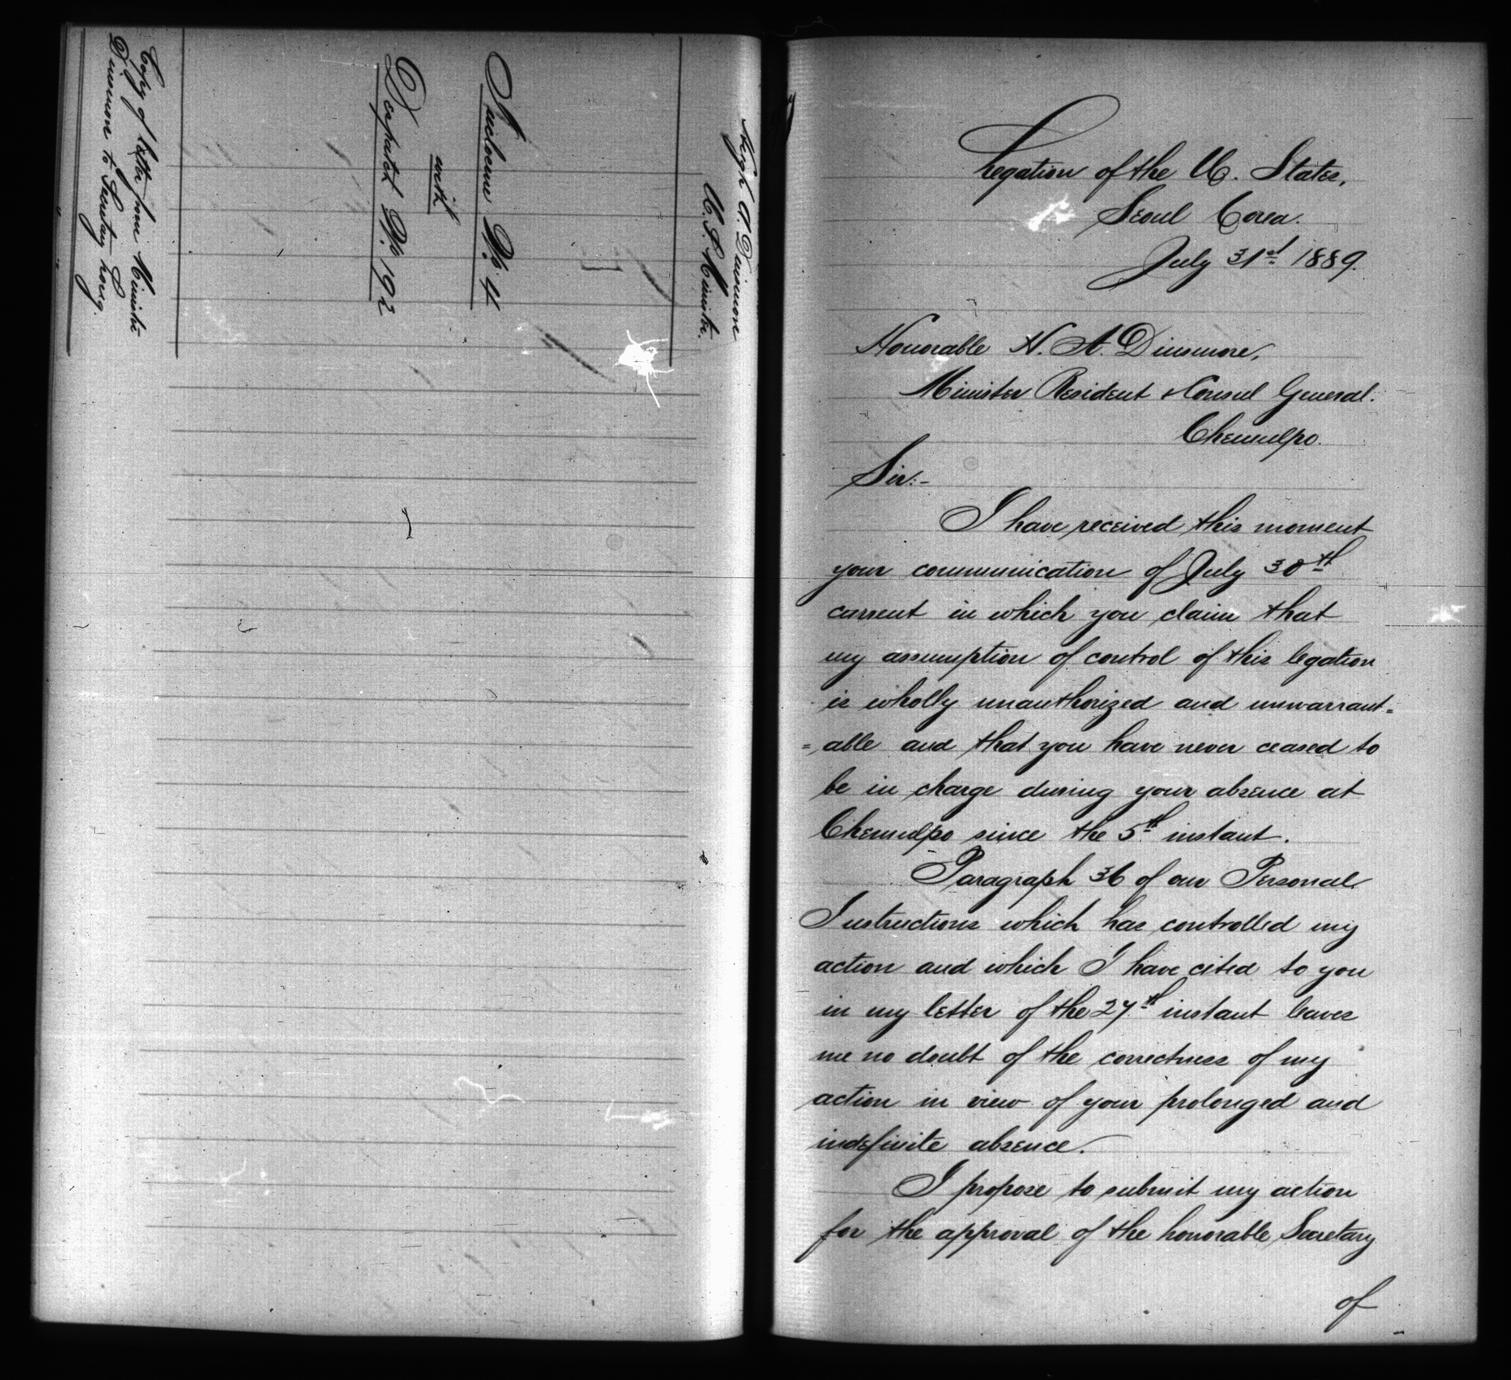 Hugh A. Dinsmore
U.S. Minister.
Inclosure No. 4
with
Dispatch No. 192
Copy of letter from Minister
Dinsmore to Secretary Long.
Legation of the U. States,
Seoul Corea.
July 31st 1889.
Honorable H. A. Dinsmore,
Minister Resident & Consul General.
Chemulpo.
Sir:-
I have received this moment
your communication of July 30th
current in which you claim that
my assumption of control of this legation
is wholly unauthorized and unwarrant=
=able and that you have never ceased to
be in charge during your absence at
Chemulpo since the 5th instant.
Paragraph 36 of our Personal
Instructions which has controlled my
action and which I have cited to you
in my letter of the 27th instant leaves
me no doubt of the correctness of my
action in view of your prolonged and
indefinite absence.
I propose to submit my action
for the approval of the honorable Secretary
of